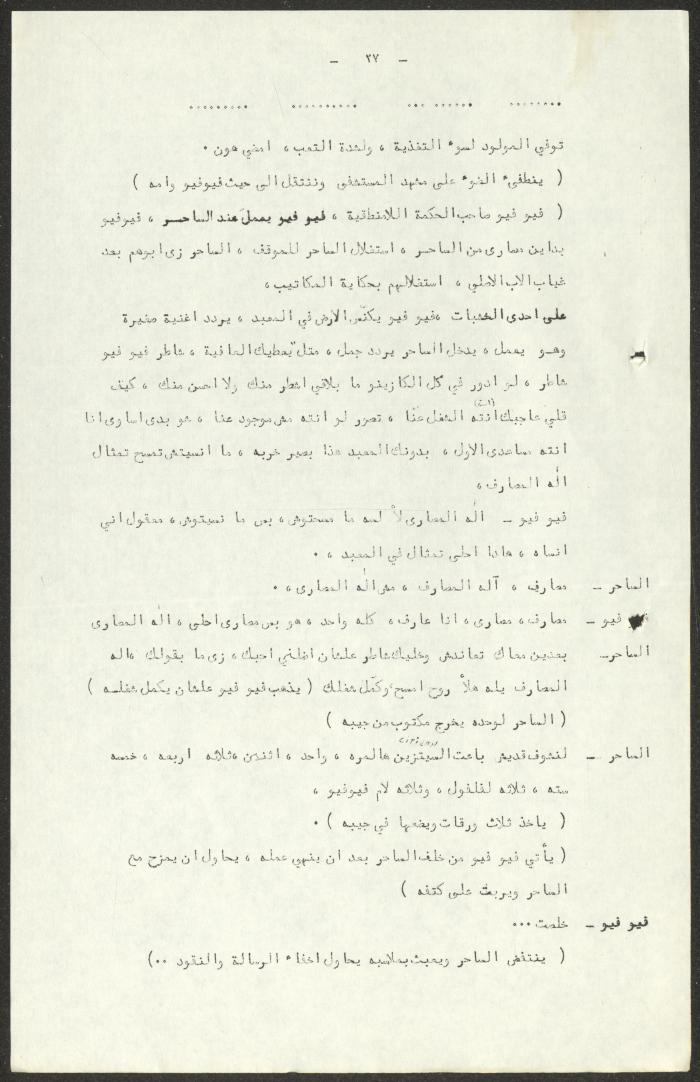 - ٣٧ -
........ ...... ... .......... .........
توفي المولود لسوء التغذية ، ولشدة التعب ، امضي هون .
( ينطفىء الضوء على مشهد المستشفى وننتقل الى حيث فيوفيو وامه )
( فيو فيو صاحب الحكمة اللامنطقية ، فيو فيو يعمل عند الساحر ، فيوفيو
بداين مصاري من الساحر ، استغلال الساحر للموقف ، الساحر زي ابوهم بعد
غياب الاب الاصلي ، استغلالهم بحكاية المكاتيب ،
على احدى الخشبات ،فيو فيو يكنّس الارض في المعبد ، يردد اغنية صغيرة
وهو يعمل ، يدخل الساحر يردد جمل ، مثل يعطيك العافية ، شاطر فيو فيو
شاطر ، لو ادور في كل الكازينو ما بلاقي اشطر منك ولا احسن منك ، كيف
قلي عاجبك انته الشغل عنا ، تصور لو انته مش موجود عنا ، شو بدي اساوي انا
انته مساعدي الاول ، بدونك المعبد هذا بصير خربه ، ما انسيتش تمسح تمثال
اله المصارف ،
فيو فيو - اله المصاري لأ لسه ما مسحتوش ، بس ما نسيتوش ، معقول اني
انساه ، هاذا احلى تمثال في المعبد ، .
الساحر - مصارف ، آله المصارف ، مش اله المصاري ، .
فيو - مصارف ، مصاري ، انا عارف ، كله واحد ، هو بس مصاري احلى ، اله المصاري
الساحر- بعدين معاك تعاندش وخليك شاطر علشان اضلني احبك ، زي ما بقولك ،اله
المصارف يله هلأ روح امسح وكمّل شغلك ( يذهب فيو فيو علشان يكمل شغله )
( الساحر لوحده يخرج مكتوب من جيبه )
الساحر - لنشوف قديش باعت السيتزين هالمره ، واحد ، اثنين ،ثلاثه اربعه ، خمسه
سته ، ثلاثه لفلفول ، وثلاثه لام فيوفيو ،
( ياخذ ثلاث ورقات ويضعها في جيبه ) .
( يأتي فيو فيو من خلف الساحر بعد ان ينهي عمله ، يحاول ان يمزح مع
الساحر ويربت على كتفه )
فيو فيو - خلصت ...
( ينتفض الساحر ويعبث بملابسه يحاول اخفاء الرسالة والنقود ..)